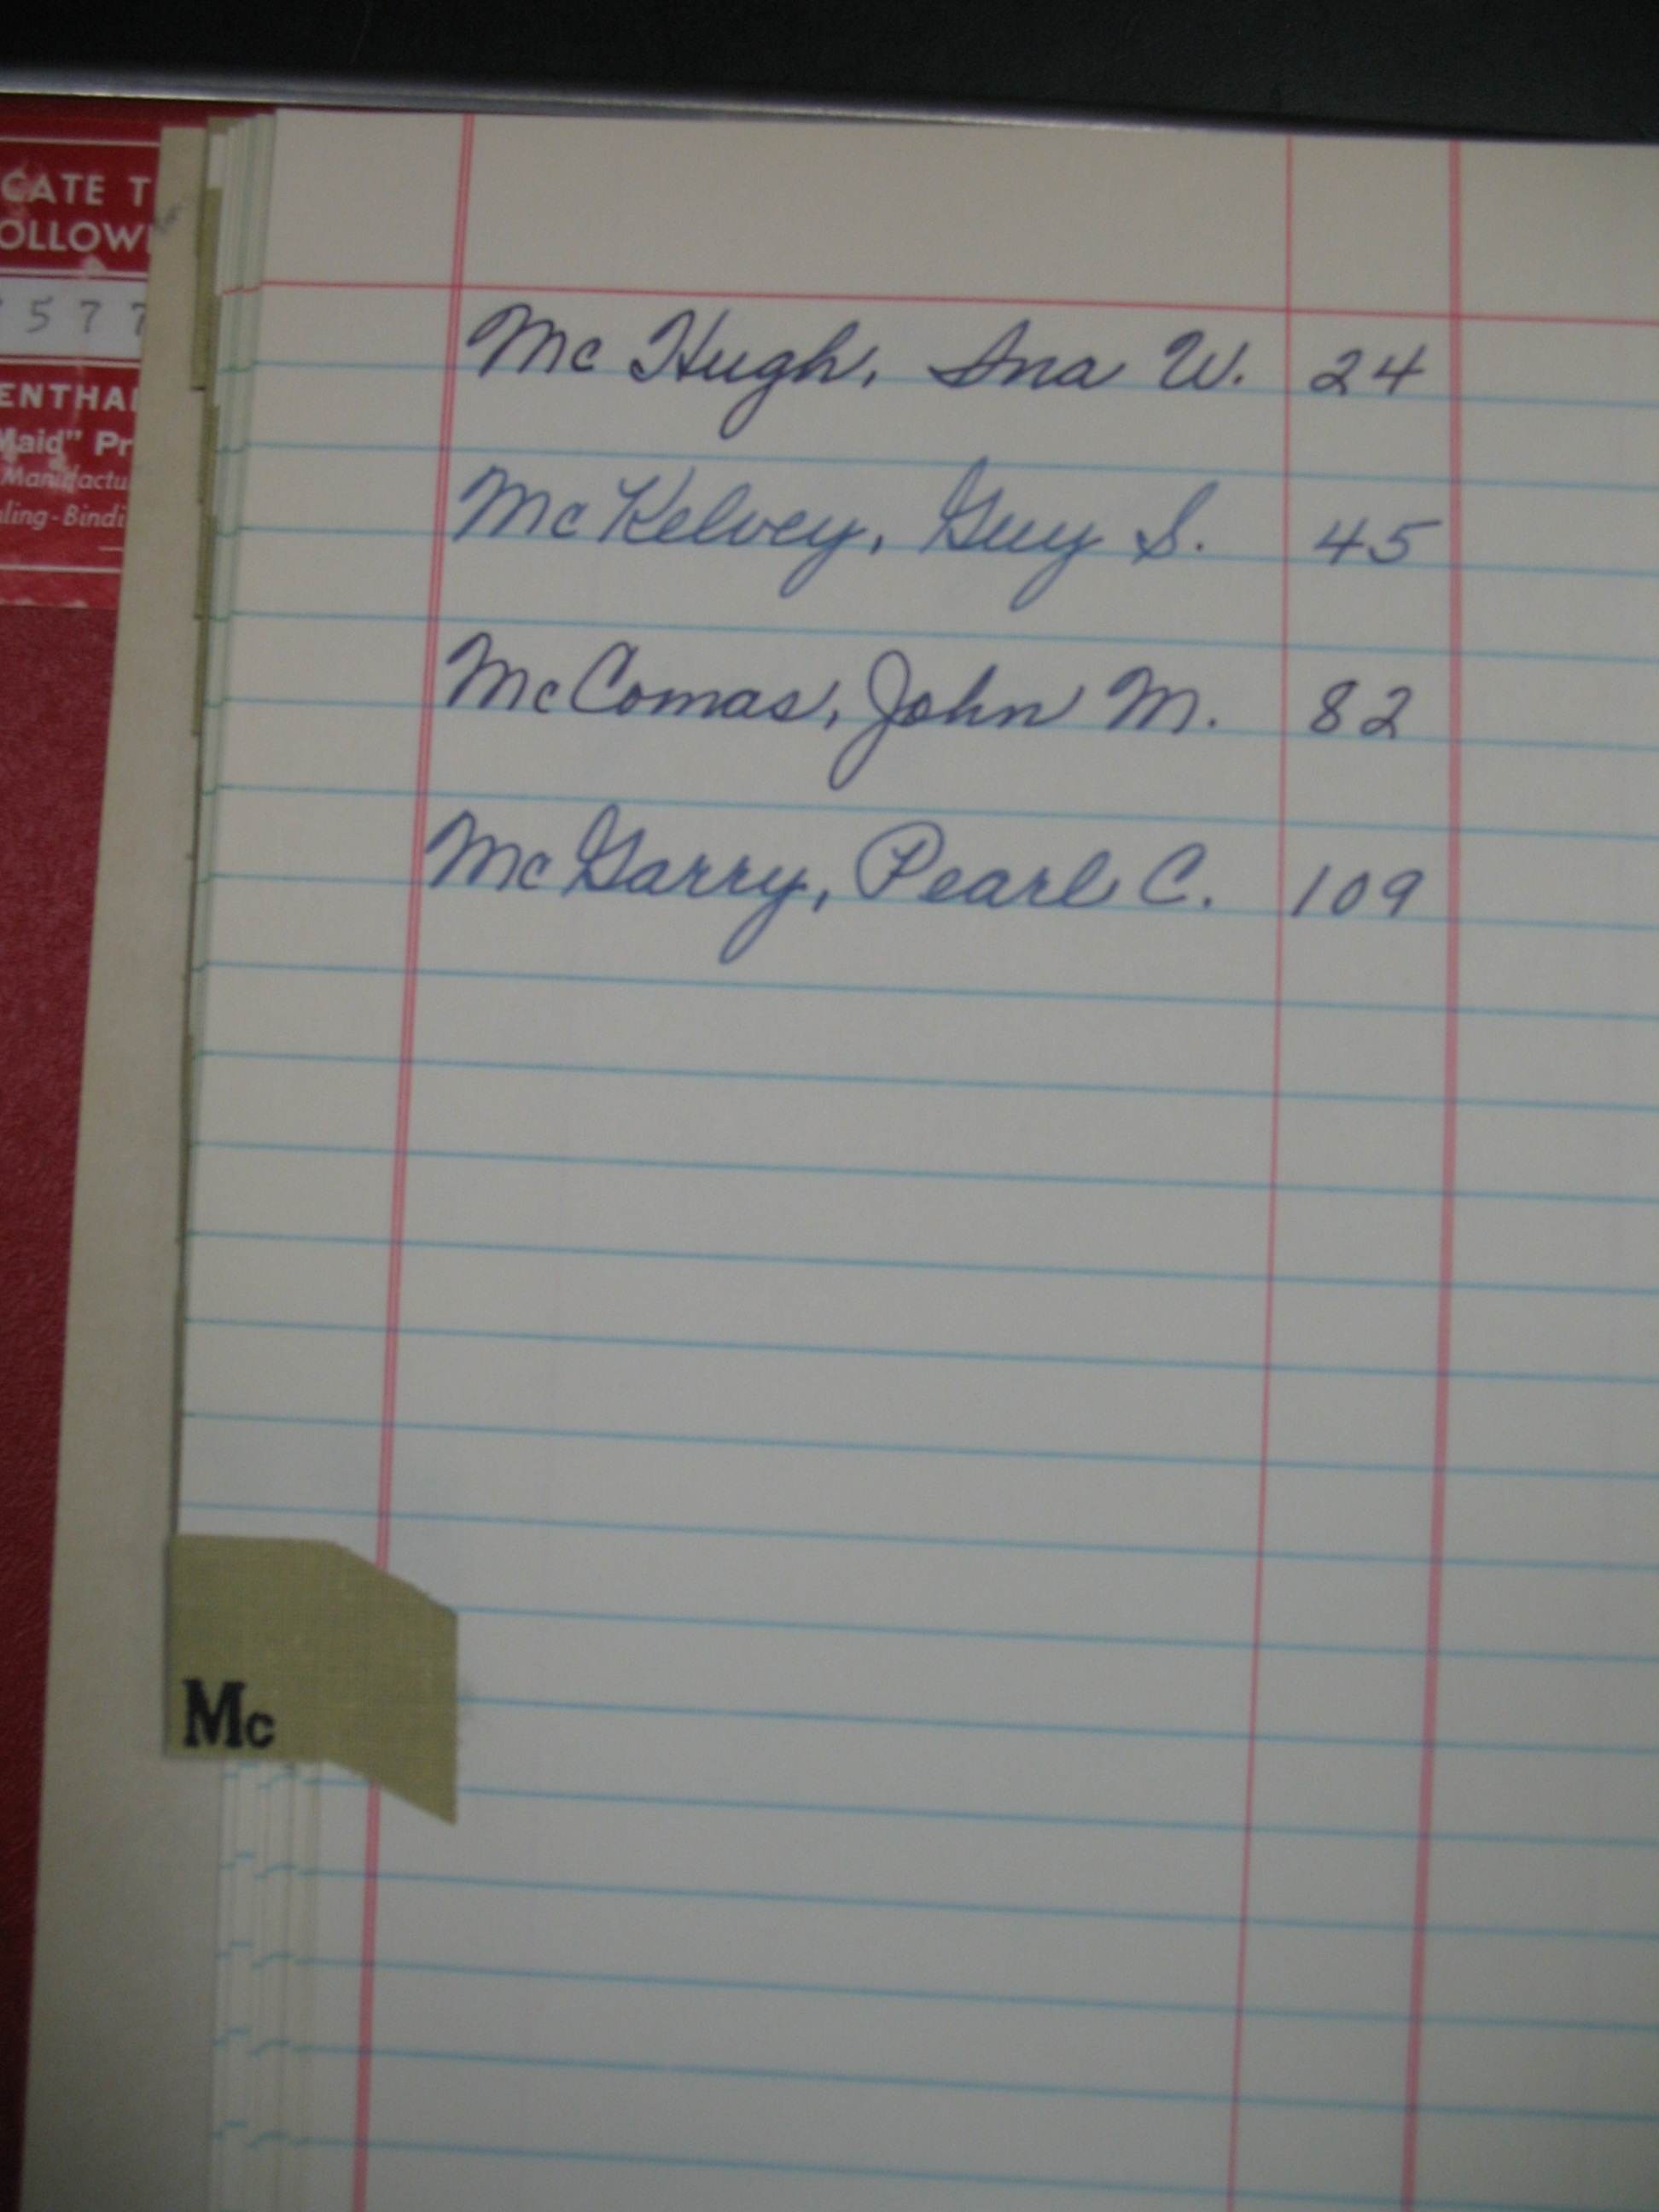 CATE T
OLLOWI
577
ENTHAL
Maid" Pr
Manufactu
ling-Bindi
McHugh, Ina W. 24
McKelvey, Guy S. 45
McComas, John M. 82
McGarry, Pearl C. 109
Mc